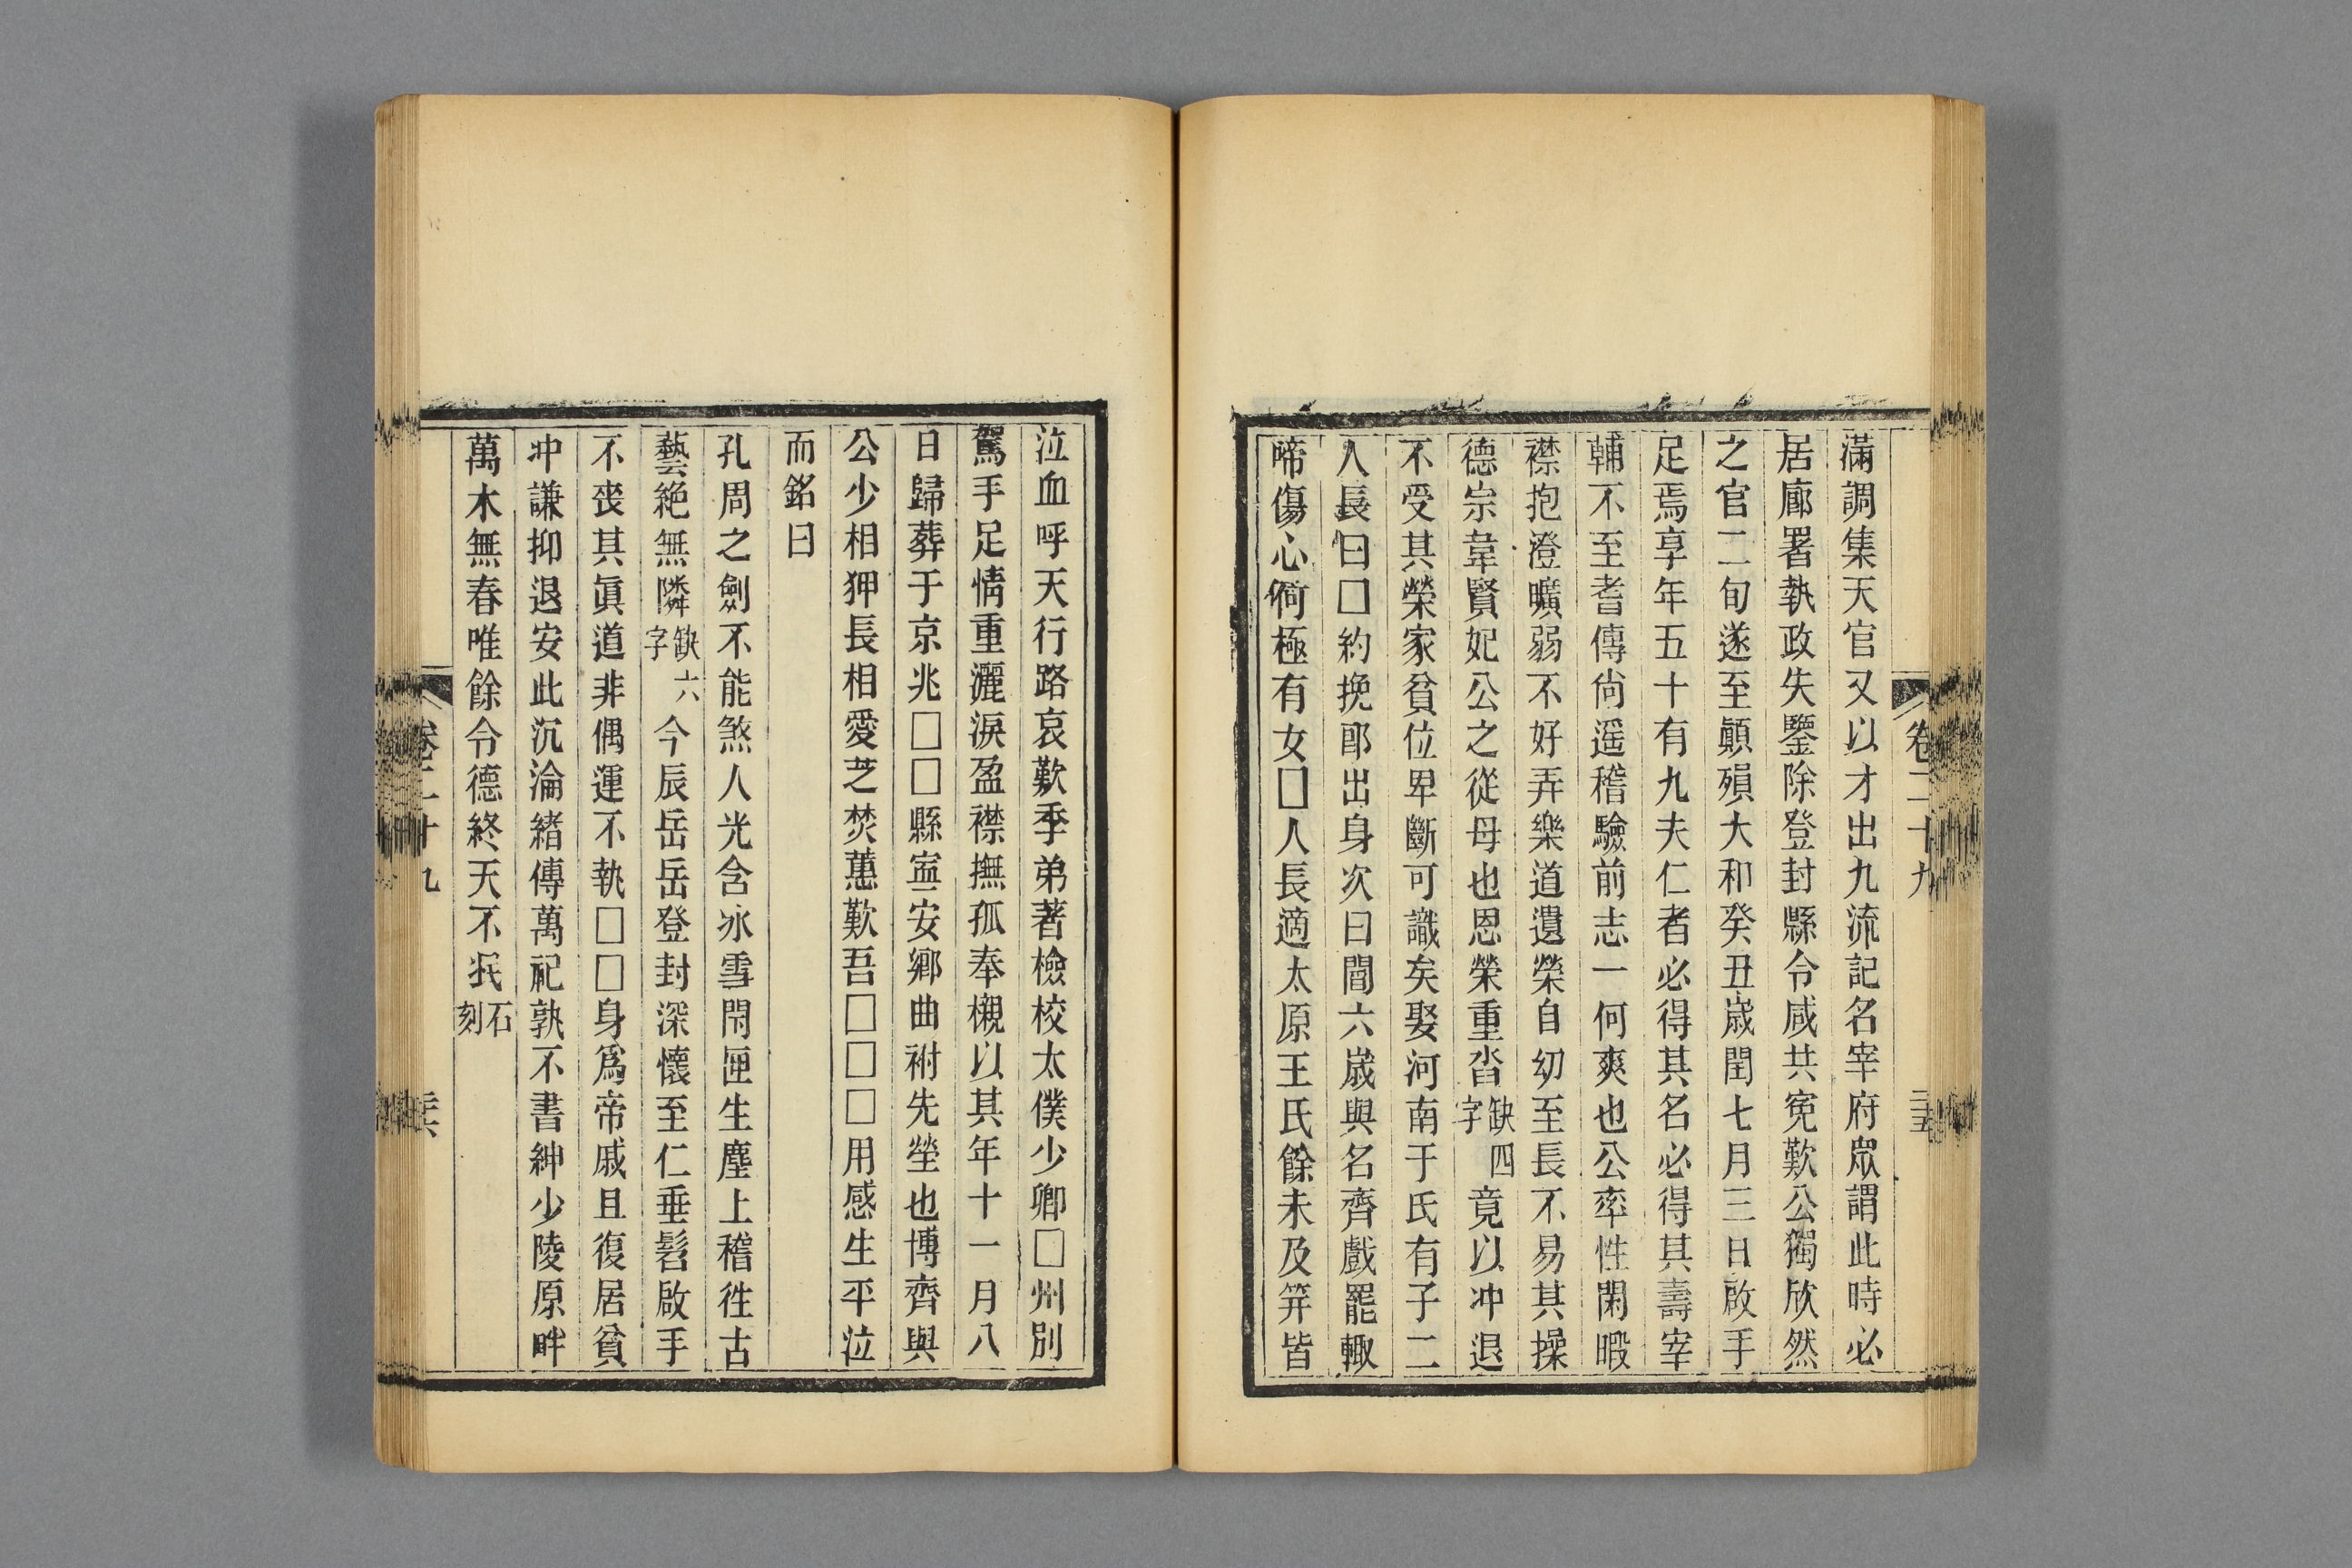 卷二十九
三五
滿調集天官又以才出九流記名宰府眾謂此時必
居廊署執政失鑒除登封縣令咸共寃歎公獨欣然
之官二旬遂至顚殞大和癸丑歲閏七月三日啟手
足焉享年五十有九夫仁者必得其名必得其壽宰
輔不至耆傳尙遥稽驗前志一何爽也公率性閑暇
襟抱澄曠弱不好弄樂道遺榮自幼至長不易其操
德宗韋賢妃公之從母也恩榮重沓缺四字竟以冲退
不受其榮家貧位卑斷可識矣娶河南于氏有子二
人長曰□約挽郎出身次曰閽六歲與名齊戲罷輙
啼傷心何極有女□人長適太原王氏餘未及笄皆
泣血呼天行路哀歎季弟著檢校太僕少卿□州別
駕手足情重灑淚盈襟撫孤奉櫬以其年十一月八
日歸葬于京兆□□縣寍安鄉曲祔先塋也博齊與
公少相狎長相愛芝焚蕙歎吾□□□用感生平泣
而銘曰
孔周之劍不能煞人光含冰雪閇匣生塵上稽徃古
藝絕無隣缺六字今辰岳岳登封深懷至仁垂髫啟手
不喪其眞道非偶運不執□□身爲帝戚且復居貧
冲謙抑退安此沉淪緒傳萬祀孰不書紳少陵原畔
萬木無春唯餘令德終天不泯石刻
卷二十九
三六